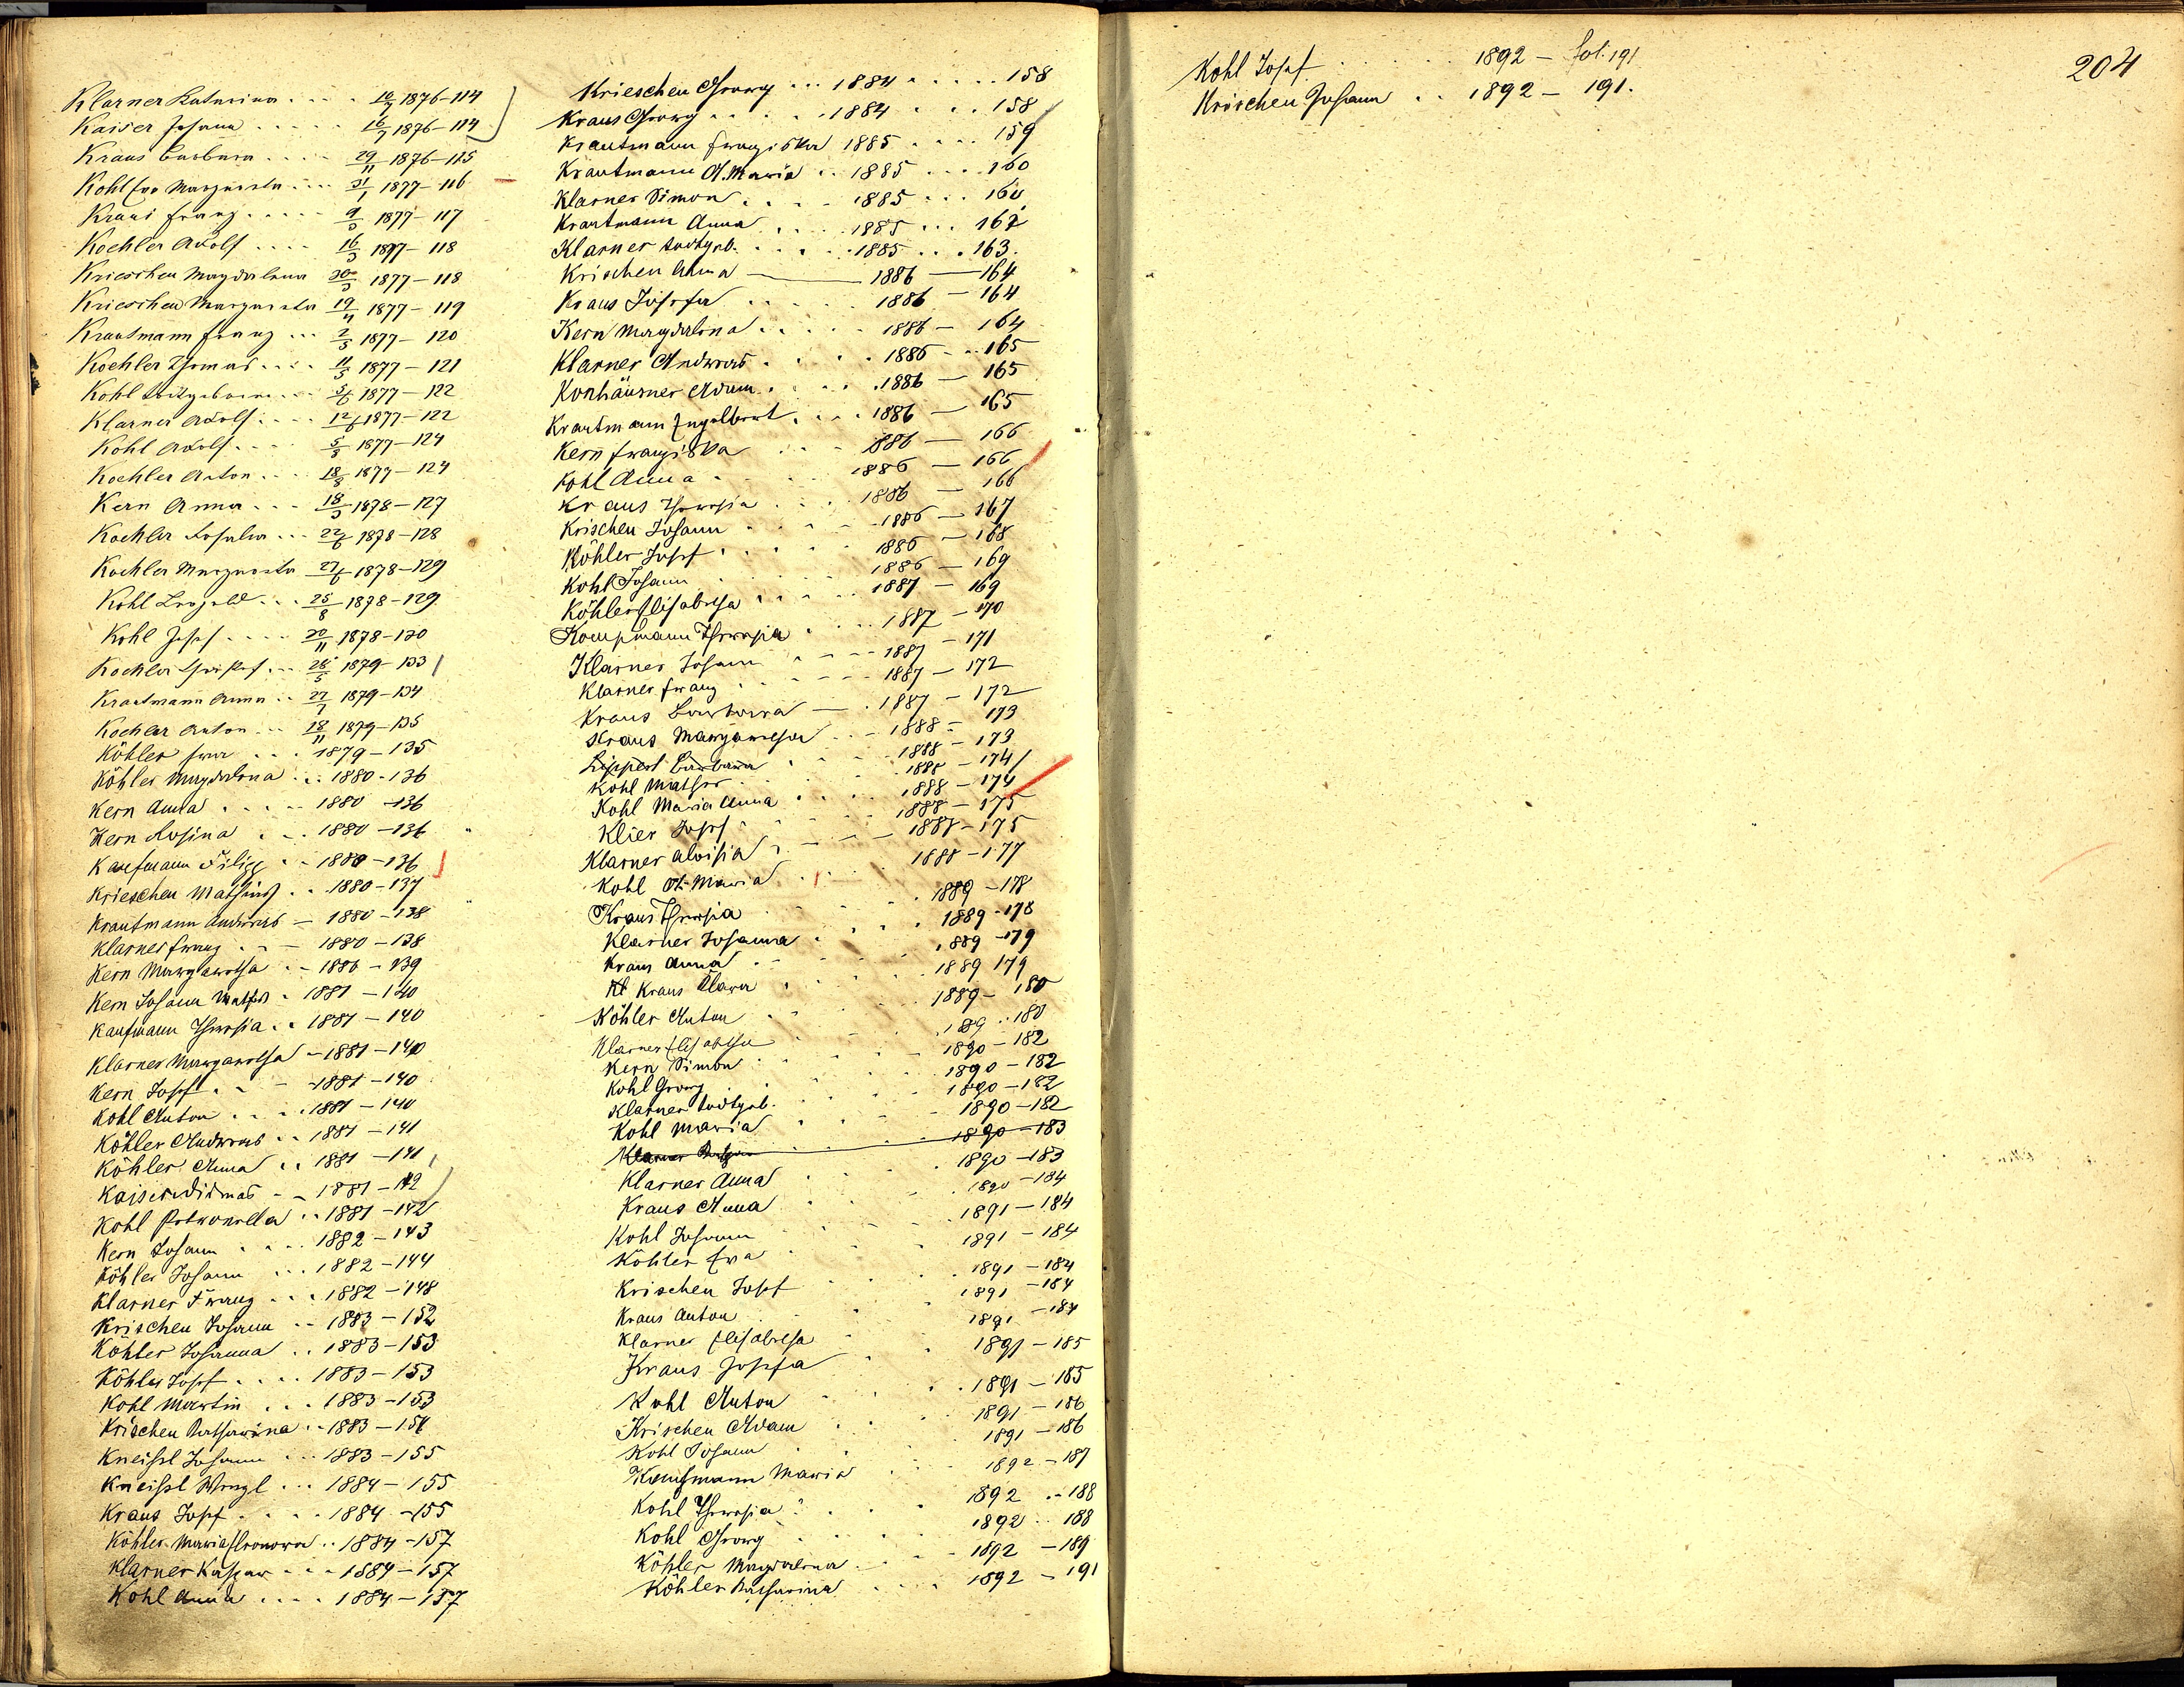 Klarner Katarina .... 16/7 1876-114
Kaiser Johann ..... 16/7 1876-114
Kraus Barbara .... 29/11 1876-115
Kohl Eva Margareta ... 31/1 1877-116
Kraus Franz ..... 9/3 1877-117
Koehler Adolf .... 16/3 1877-118
Krieschen Magdalena 30/3 1877-118
Krieschen Margareta 19/4 1877-119
Krautmann Franz ... 2/5 1877-120
Koehler Thomas .... 11/5 1877-121
Kohl todtgeboren ... 5/6 1877-122
Klarner Adolf .... 12/6 1877-122
Kohl Adolf ... 5/8 1877-124
Koehler Anton ... 18/8 1877-124
Kern Anna ... 18/3 1878-127
Koehler Rosalia ... 22/6 1878-128
Koehler Margareta 27/6 1878-129
Kohl Leopold ... 25/8 1878-129
Kohl Josef .... 30/11 1878-130
Koehler ... 28/5 1879-133
Krautmann Anna .. 27/7 1879-134
Koehler Anton ... 18/11 1879-135
Köhler Eva ... 1879-135
Köhler Magdalena ... 1880-136
Kern Anna ..... 1880-136
Kern Rosina ... 1880-136
Kaufmann Filipp .. 1880-136
Krieschen Mathias .. 1880-137
Krautmann Andreas - 1880-138
Klarner Franz ... 1880-138
Kern Margaretha .. 1880-139
Kern Johann Mathes . 1881-140
Kaufmann Theresia .. 1881-140
Klarner Margaretha - 1881-140
Kern Josef .. - 1881-140
Kohl Anton .... 1881-140
Köhler Andreas .. 1881-141
Köhler Anna .. 1881-141
Kaiser Dismas - - 1881-142
Kohl Petronella .. 1881-142
Kern Johann .... 1882-143
Köhler Johann ... 1882-144
Klarner Franz ... 1882-148
Krischen Johann .. 1883-152
Köhler Johanna .. 1883-153
Köhler Josef .... 1883-153
Kohl Martin ... 1883-153
Krischen Katharina .. 1883-154
Kneißl Johann ... 1883-155
Kneißl Wenzl ... 1884-155
Kraus Josef ..... 1884-155
Köhler Maria Eleonora .. 1884-157
Klarner Kaspar ... 1884-157
Kohl Anna .... 1884-157
Krieschen Georg ... 1884 ..... 158
Kraus Georg ..... 1884 ... 158
Krautmann Franziska 1885 .... 159
Krautmann A. Maria .. 1885 .... 160
Klarner Simon .... 1885 ... 160
Krautmann Anna .... 1885 ... 162
Klarner todtgeb. ..... 1885 ... 163.
Krischen Anna — 1886 — 164
Kraus Josefa ..... 1886 — 164
Kern Magdalena ..... 1886 — 164
Klarner Andreas ..... 1886 - .. 165
Konhäusner Adam ..... 1886 — 165
Krautmann Engelbert .... 1886 — 165
Kern Franziska ... 1886 — 166
Kohl Anna .... 1886 — 166
Kraus Theresia .... 1886 — 166
Krischen Johann .... 1886 — 167
Köhler Josef ..... 1886 — 168
Kohl Johann ..... 1886 — 169
Köhler Elisabetha .... 1887 — 169
Kompmann Theresia .... 1887 - 170
Klarner Johann .... 1887 - 171
Klarner Franz ..... 1887 - 172
Kraus Barbara — . 1887 - 172
Kraus Margaretha .. - 1888 - 173
Lippert Barbara .... 1888 - 173
Kohl Mathes .... 1888 - 174
Kohl Maria Anna .... 1888 - 174
Klier Josef ..... 1888 - 175
Klarner Aloisia .... 1888 - 175
Kohl A. Maria .... 1888 - 177
Kraus Theresia .... 1889 - 178
Klarner Johanna .... 1889 - 178
Kraus Anna .... 1889 - 179
Kl Kraus Klara .... 1889 179
Köhler Anton .... 1889 - 180
Klarner Elisabetha .... 1889 .. 180
Kern Simon .... 1890 - 182
Kohl Georg .... 1890 - 182
Klarner todtgeb. .... 1890 - 182
Kohl Maria .... 1890 - 182
Klarner — 1890 - 183
Klarner Anna .... 1890 - 183
Kraus Anna .... 1890 - 184
Kohl Johann .... 1891 - 184
Köhler Eva .... 1891 - 184
Krischen Josef .... 1891 - 184
Kraus Anton .... 1891 - 184
Klarner Elisabetha .... 1891 - 184
Kraus Josefa .... 1891 - 185
Kohl Anton .... 1891 - 185
Krischen Adam .... 1891 - 186
Kohl Johann .... 1891 - 186
Kaufmann Maria .... 1892 - 187
Kohl Theresia .... 1892 .. 188
Kohl Georg .... 1892 .. 188
Köhler Magdalena .... 1892 - 189
Köhler Katharina .... 1892 - 191
204
Kohl Josef ..... 1892 - fol. 191
Krischen Johann .. 1892 - 191.